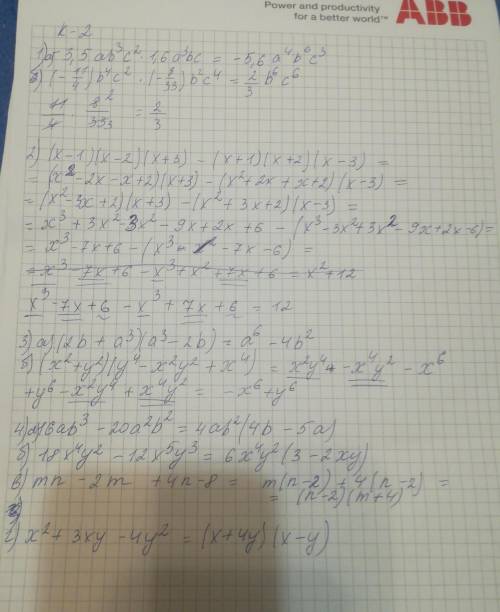 Power and productivity
for a better world™ ABB
К-2
1) а) 3,5ab³c² · 1,6a³bc = -5,6a⁴b⁶c³
б) (-11/4)b⁴c² · (-8/33)b²c⁴ = 2/3 b⁶c⁶
11/4 · 8²/33₃ = 2/3
2) (x-1)(x-2)(x+3) - (x+1)(x+2)(x-3) =
= (x²-2x-x+2)(x+3) - (x²+2x+x+2)(x-3) =
= (x²-3x+2)(x+3) - (x²+3x+2)(x-3) =
= x³+3x²-3x²-9x+2x+6 - (x³-3x²+3x²-9x+2x-6) =
= x³-7x+6 - (x³ - 7x-6) =
= x³-7x+6 - x³+x²+7x+6 = x²+12
x³-7x+6 - x³+7x+6 = 12
3) а) (2b+a³)(a³-2b) = a⁶-4b²
б) (x²+y²)(y⁴-x²y²+x⁴) = x²y⁴ - x⁴y² - x⁶
+y⁶ - x²y⁴ + x⁴y² = -x⁶+y⁶
4) а) 16ab³ - 20a²b² = 4ab²(4b-5a)
б) 18x⁴y² - 12x⁵y³ = 6x⁴y²(3-2xy)
в) mn - 2m + 4n - 8 = m(n-2) + 4(n-2) =
= (n-2)(m+4)
г) x²+3xy-4y² = (x+4y)(x-y)